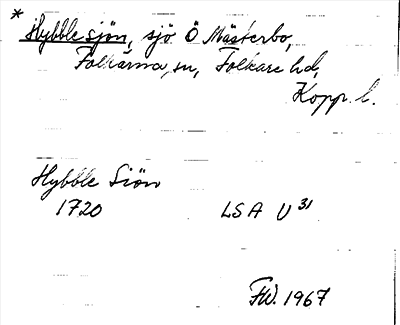 * Hybblesjön, sjö Ö Mästerbo,
Folkärna, sn, Folkare hd,
Kopp. l.
Hybble Siön
1720 LSA U 31
FW. 1967